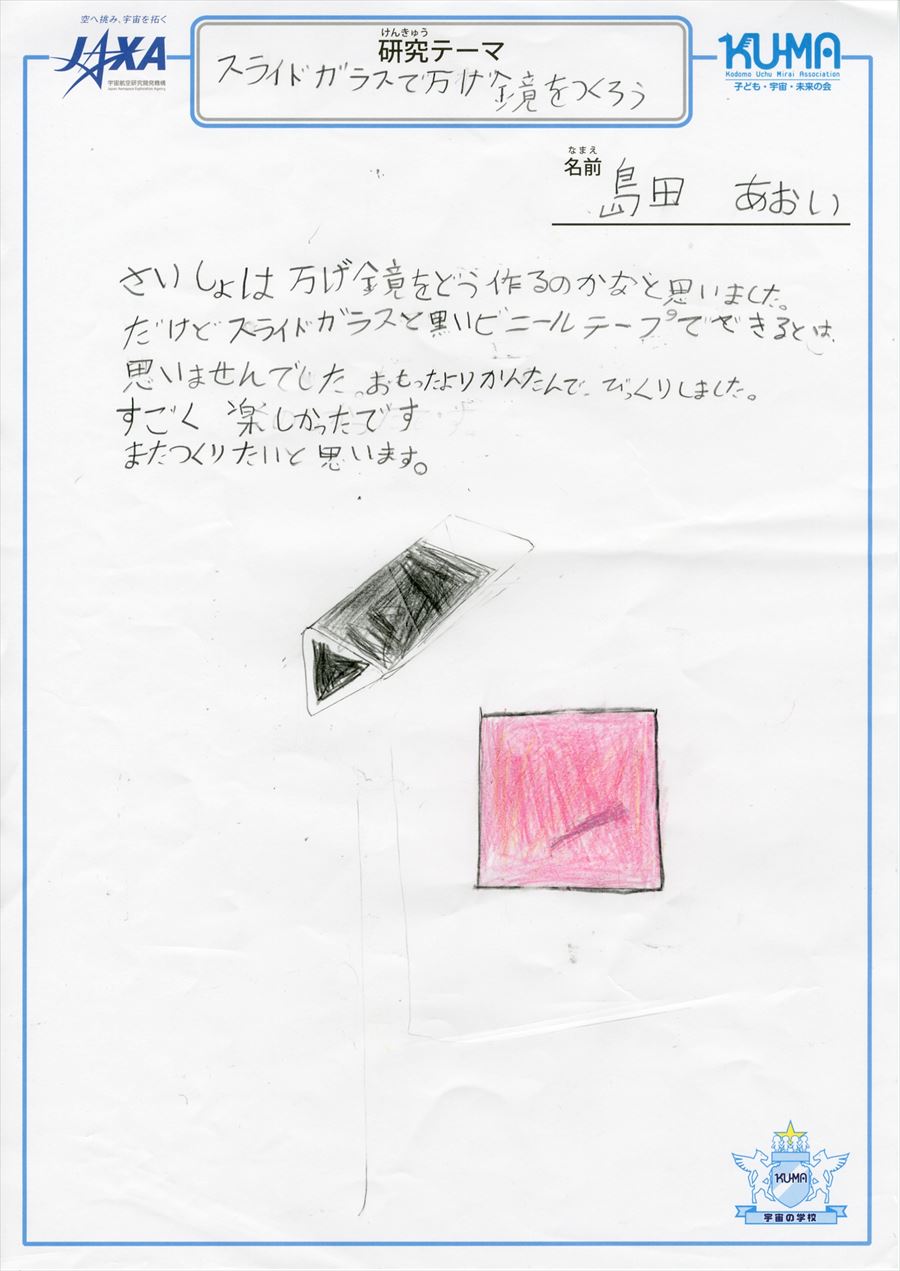 空へ挑み、宇宙を拓く
JAXA
宇宙航空研究開発機構
Japan Aerospace Exploration Agency
けんきゅう
研究テーマ
スライドガラスで万げ鏡をつくろう
KU-MA
Kodomo Uchu Mirai Association
子ども・宇宙・未来の会
なまえ
名前
島田 あおい
さいしょは万げ鏡をどう作るのかなと思いました。
だけどスライドガラスと黒いビニールテープでできるとは、
思いませんでした。おもったよりかんたんで、びっくりしました。
すごく楽しかったです
またつくりたいと思います。
KU-MA
宇宙の学校